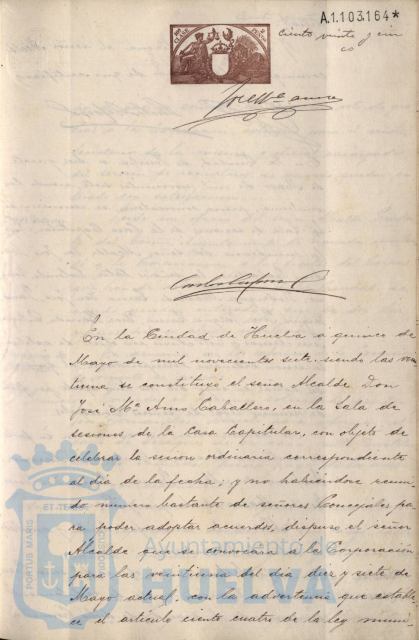 A.1.103.164*
Ciento veinte y cin
co
José Mª Amo
En la Ciudad de Huelva a quince de
Mayo de mil novecientos siete siendo las vein
tiuna se constituyó el señor Alcalde Don
José Mª Amo Caballero, en la Sala de
sesiones de la Casa Capitular, con objeto de
celebrar la sesion ordinaria correspondiente
al dia de la fecha; y no habiéndose reuni
do numero bastante de señores Concejales pa
ra poder adoptar acuerdos, dispuso el señor
Alcalde que se convocara a la Corporación
para las veintiuna del dia diez y siete de
Mayo actual, con la advertencia que estable
ce el artículo ciento cuatro de la ley muni
PORTUS MARIS
ET TERRAE
Ayuntamiento de
HUELVA